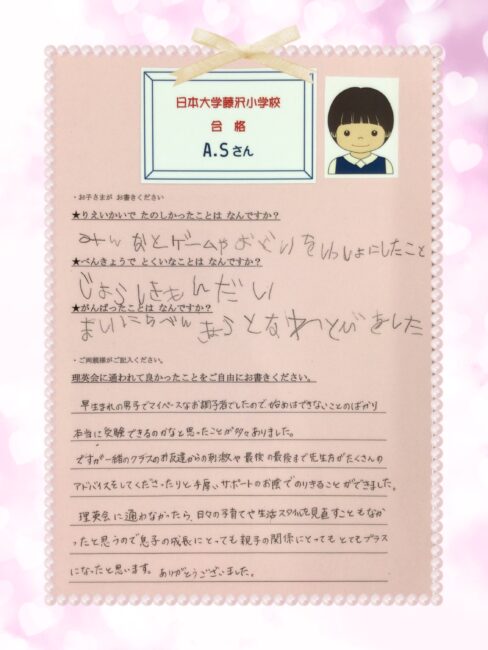 日本大学藤沢小学校
合格
A.Sさん
・お子さまが お書きください
★りえいかいで たのしかったことは なんですか？
みんなとゲームやおどりをいっしょにしたこと
★べんきょうで とくいなことは なんですか？
じょうしきもんだい
★がんばったことは なんですか？
まいにちべんきょうとなわとびをました
・ご両親様がご記入ください。
理英会に通われて良かったことをご自由にお書きください。
早生まれの男子でマイペースなお調子者でしたので始めはできないことのばかり
本当に受験できるのかなと思ったことが多々ありました。
ですが一緒のクラスのお友達からの刺激や最後の最後まで先生方がたくさんの
アドバイスをしてくださったりと手厚いサポートのお陰でのりきることができました。
理英会に通わなかったら、日々の子育てや生活スタイルを見直すこともなか
ったと思うので息子の成長にとっても親子の関係にとってもとてもプラス
になったと思います。ありがとうございました。